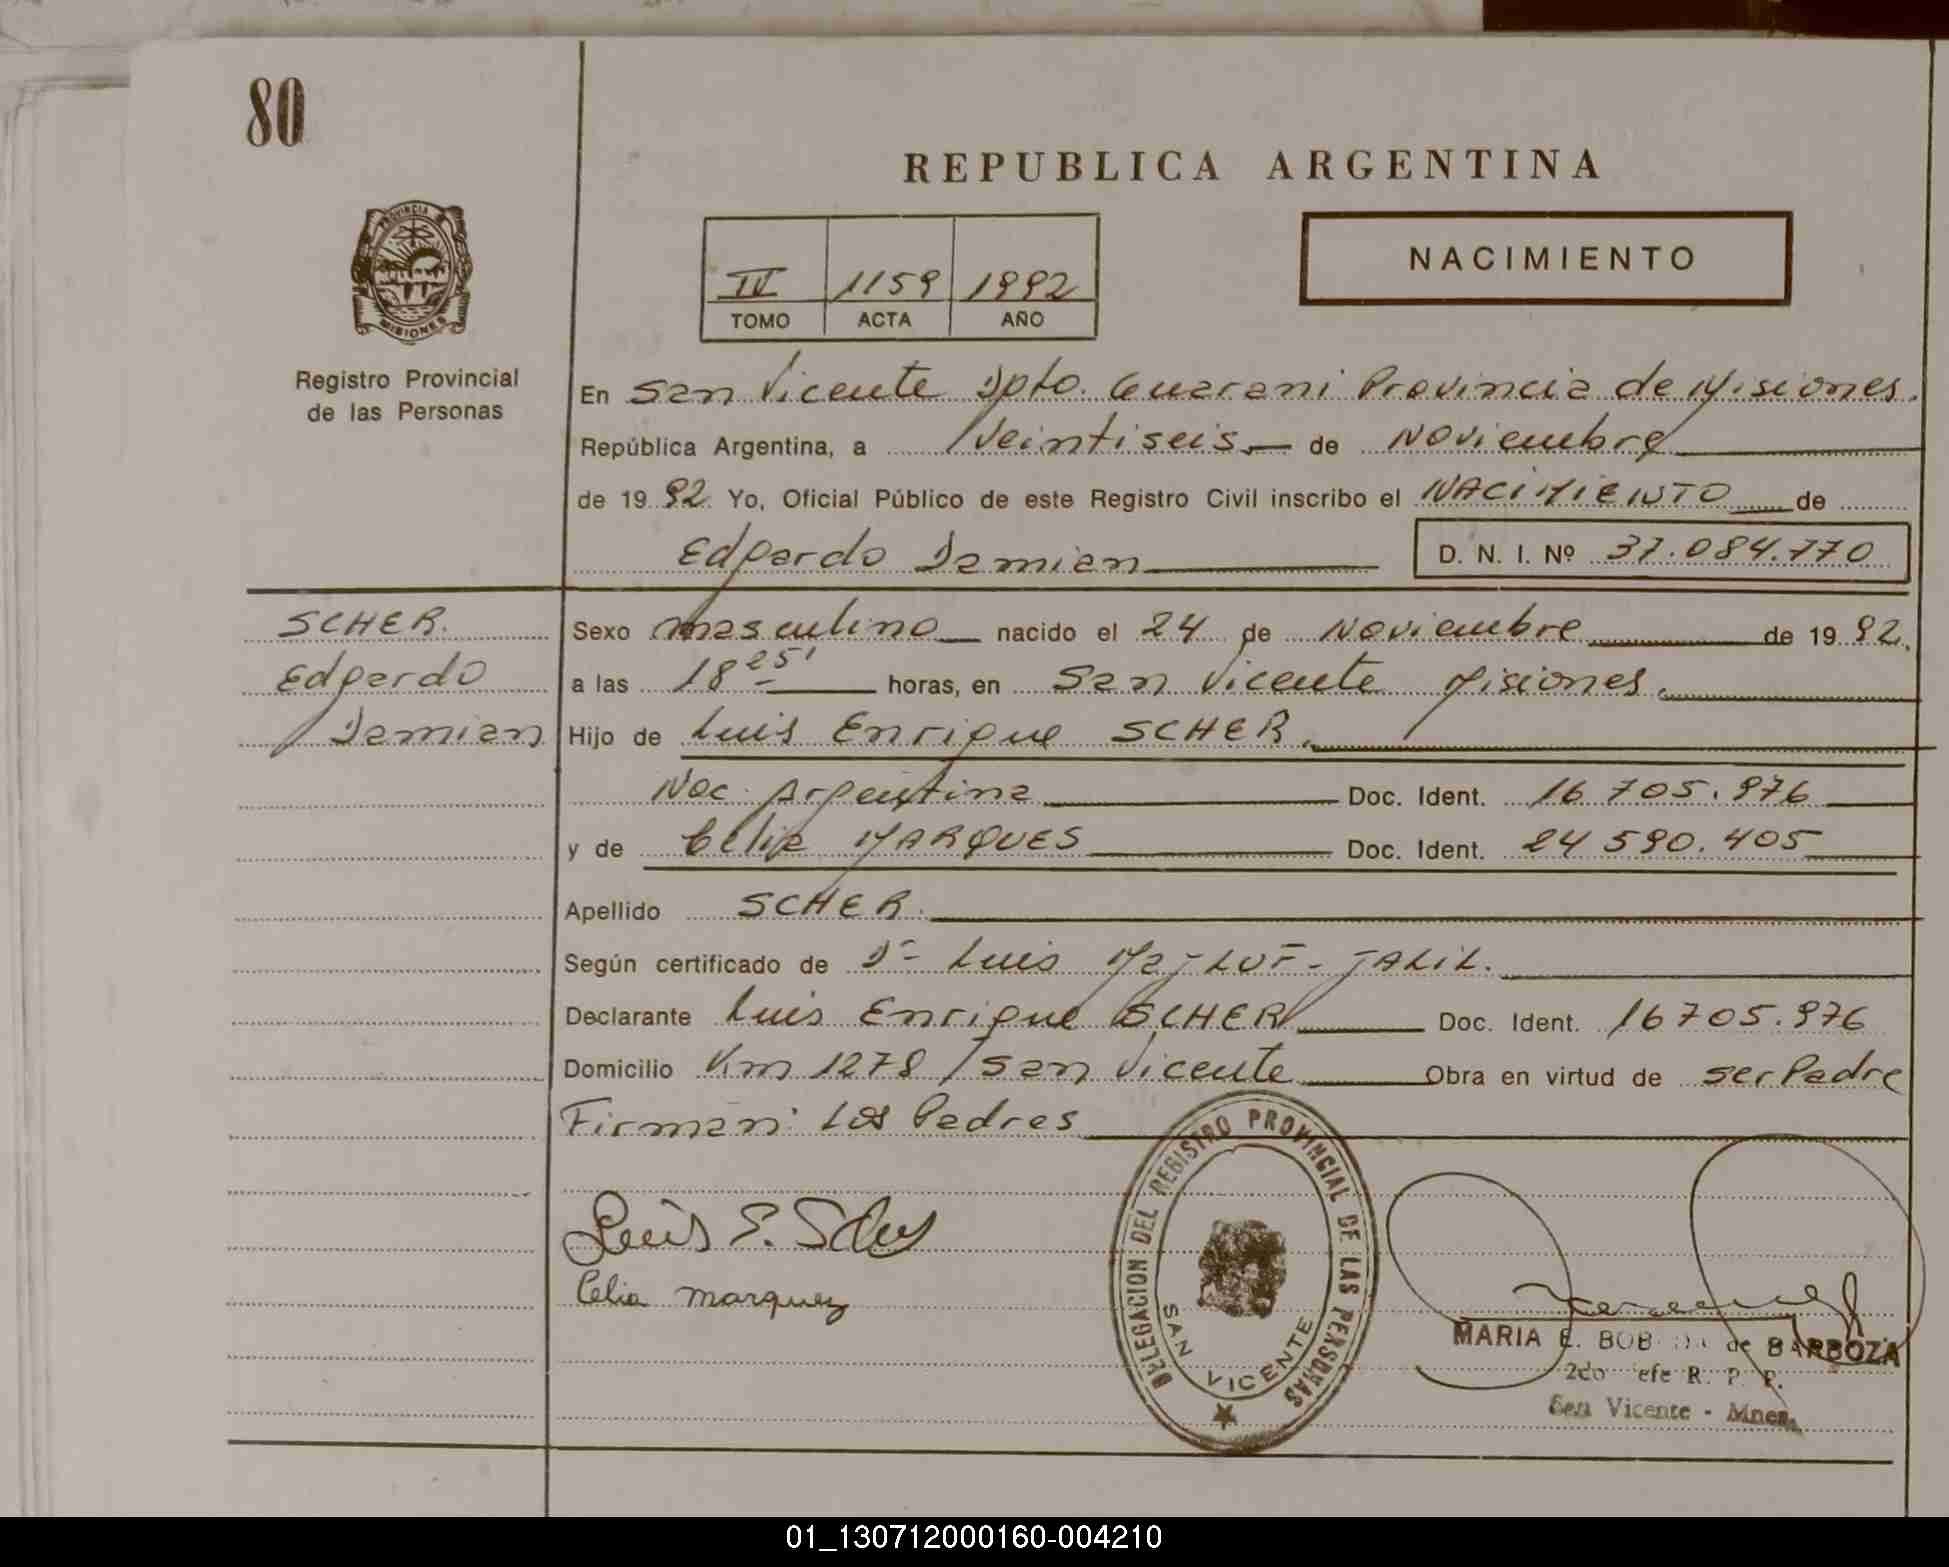 80
REPUBLICA ARGENTINA
PROVINCIA
MISIONES
NACIMIENTO
IV 1159 1992
TOMO ACTA AÑO
Registro Provincial
de las Personas
En San Vicente Dpto. Guarani Provincia de Misiones.
República Argentina, a Veintiseis de Noviembre
de 1992. Yo, Oficial Público de este Registro Civil inscribo el NACIMIENTO de
Edgardo Damian D. N. I. Nº 37.084.770
SCHER.
Edgardo
Damian
Sexo masculino nacido el 24 de Noviembre de 1992.
a las 18 25' horas, en San Vicente Misiones.
Hijo de Luis Enrique SCHER.
Nac. Argentina Doc. Ident. 16 705.976
y de Celia MARQUES Doc. Ident. 24 590.405
Apellido SCHER.
Según certificado de Dr Luis JALIL.
Declarante Luis Enrique SCHER Doc. Ident. 16705.976
Domicilio Km 1278 / San Vicente Obra en virtud de ser Padre
Firman: Los Padres
Luis E. Scher
Celia marquez
DELEGACION DEL REGISTRO PROVINCIAL DE LAS PERSONAS
SAN VICENTE
MARIA E. de BARBOZA
2do efe R. P. P.
San Vicente - Mnes.
01_130712000160-004210